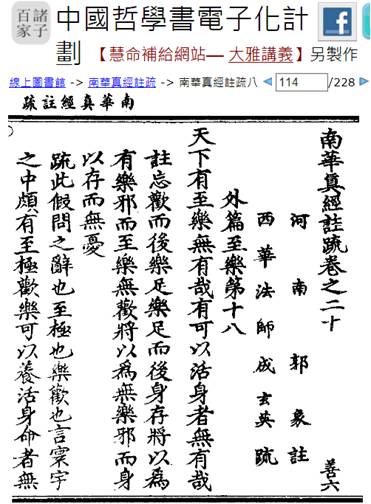 諸子
百家
中國哲學書電子化計
劃 【慧命補給網站— 大雅講義】另製作
線上圖書館 -> 南華真經註疏 -> 南華真經註疏八 114 /228
南華真經註疏
南華真經註疏卷之二十 善六
河南郭象註
西華法師成玄英疏
外篇至樂第十八
天下有至樂無有哉有可以活身者無有哉
註忘歡而後樂足樂足而後身存將以為
有樂邪而至樂無歡將以為無樂邪而身
以存而無憂
疏此假問之辭也至極也樂歡也言寰宇
之中頗有至極歡樂可以養活身命者無